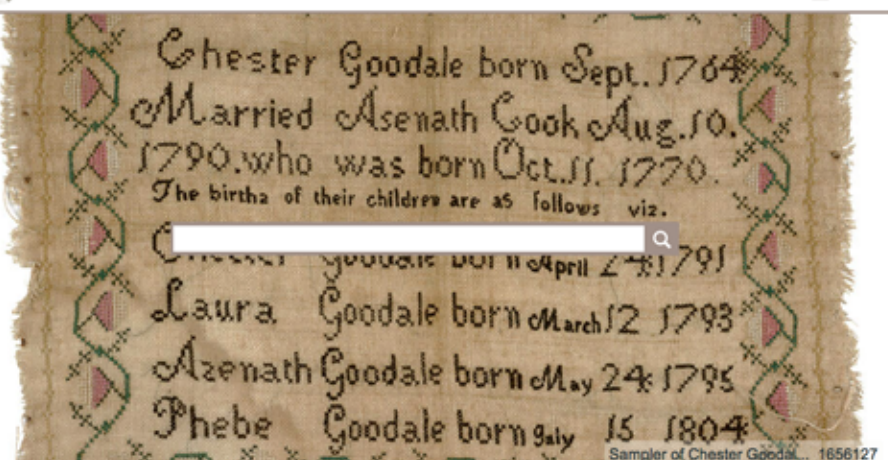 Chester Goodale born Sept. 1764
Married Asenath Cook Aug. 10.
1790. who was born Oct. 11. 1770.
The births of their children are as follows viz.
Goodale born April 24 1791
Laura Goodale born March 12 1793
Azenath Goodale born May 24 1795
Phebe Goodale born July 15 1804
Sampler of Chester Goodal... 1656127